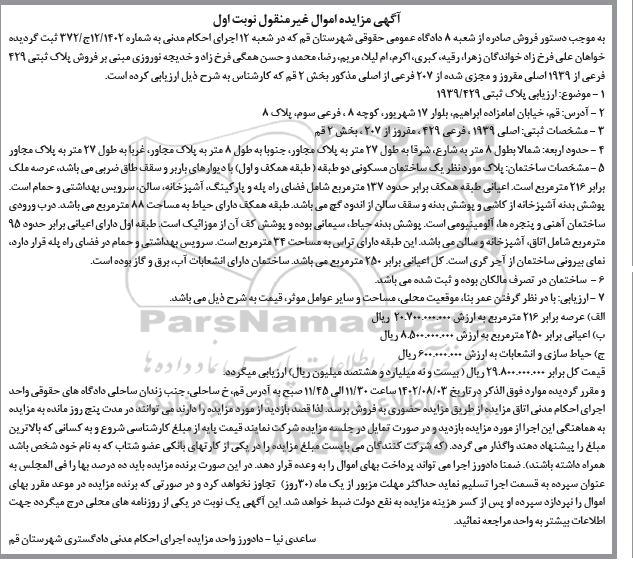 آگهی مزایده اموال غیرمنقول نوبت اول
به موجب دستور فروش صادره از شعبه ۸ دادگاه عمومی حقوقی شهرستان قم که در شعبه ۱۲ اجرای احکام مدنی به شماره ۱۲/۱۴۰۲ج/۳۷۲ ثبت گردیده
خواهان علی فرخ زاد خواندگان زهرا، رقیه، کبری، اکرم، ام لیلا، مریم، رضا، محمد و حسن همگی فرخ زاد و خدیجه نوروزی مبنی بر فروش پلاک ثبتی ۴۲۹
فرعی از ۱۹۳۹ اصلی مفروز و مجزی شده از ۲۰۷ فرعی از اصلی مذکور بخش ۲ قم که کارشناس به شرح ذیل ارزیابی کرده است.
۱ - موضوع: ارزیابی پلاک ثبتی ۱۹۳۹/۴۲۹
۲ - آدرس: قم، خیابان امامزاده ابراهیم، بلوار ۱۷ شهریور، کوچه ۸ ، فرعی سوم، پلاک ۸
۳ - مشخصات ثبتی: اصلی ۱۹۳۹ ، فرعی ۴۲۹ ، مفروز از ۲۰۷ ، بخش ۲ قم
۴ - حدود اربعه: شمالا بطول ۸ متر به شارع، شرقا به طول ۲۷ متر به پلاک مجاور، جنوبا به طول ۸ متر به پلاک مجاور، غربا به طول ۲۷ متر به پلاک مجاور
۵ - مشخصات ساختمان: پلاک مورد نظر یک ساختمان مسکونی دو طبقه ( طبقه همکف و اول) با دیوارهای باربر و سقف طاق ضربی می باشد، عرصه ملک
برابر ۲۱۶ مترمربع است. اعیانی طبقه همکف برابر حدود ۱۳۷ مترمربع شامل فضای راه پله و پارکینگ، آشپزخانه، سالن، سرویس بهداشتی و حمام است.
پوشش بدنه آشپزخانه از کاشی و پوشش بدنه و سقف سالن از اندود گچ می باشد. طبقه همکف دارای حیاط به مساحت ۸۸ مترمربع می باشد. درب ورودی
ساختمان آهنی و پنجره ها، آلومینیومی است. پوشش بدنه حیاط، سیمانی بوده و پوشش کف آن از موزائیک است. طبقه اول دارای اعیانی برابر حدود ۹۵
مترمربع شامل اتاق، آشپزخانه و سالن می باشد. این طبقه دارای تراس به مساحت ۳۴ مترمربع است. سرویس بهداشتی و حمام در فضای راه پله قرار دارد،
نمای بیرونی ساختمان از آجر گری است. کل اعیانی برابر ۲۵۰ مترمربع می باشد. ساختمان دارای انشعابات آب، برق و گاز بوده است.
۶ - ساختمان در تصرف مالکان بوده و ثبت شده می باشد.
۷ - ارزیابی: با در نظر گرفتن عمر بنا، موقعیت محلی، مساحت و سایر عوامل موثر، قیمت به شرح ذیل می باشد.
الف) عرصه برابر ۲۱۶ مترمربع به ارزش ۲۰.۷۰۰.۰۰۰.۰۰۰ ریال
ب) اعیانی برابر ۲۵۰ مترمربع به ارزش ۸.۵۰۰.۰۰۰.۰۰۰ ریال
ج) حیاط سازی و انشعابات به ارزش ۶۰۰.۰۰۰.۰۰۰ ریال
قیمت کل برابر ۲۹.۸۰۰.۰۰۰.۰۰۰ ریال ( بیست و نه میلیارد و هشتصد میلیون ریال) ارزیابی میگردد.
و مقرر گردیده موارد فوق الذکر در تاریخ ۱۴۰۲/۰۸/۰۳ ساعت ۱۱/۳۰ الی ۱۱/۴۵ صبح به آدرس قم، خ ساحلی، جنب زندان ساحلی دادگاه های حقوقی واحد
اجرای احکام مدنی اتاق مزایده از طریق مزایده حضوری به فروش برسد. لذا قصد بازدید از مورد مزایده را دارند می توانند در مدت پنج روز مانده به مزایده
به هماهنگی این اجرا از مورد مزایده بازدید و در صورت تمایل در جلسه مزایده شرکت نمایند قیمت پایه از مبلغ کارشناسی شروع و به کسانی که بالاترین
مبلغ را پیشنهاد دهند واگذار می گردد. (که شرکت کنندگان می بایست مبلغ مزایده را در یکی از کارتهای بانکی عضو شتاب که به نام خود شخص باشد
همراه داشته باشند). ضمنا دادورز اجرا می تواند پرداخت بهای اموال را به وعده قرار دهد. در این صورت برنده مزایده باید ده درصد بها را فی المجلس به
عنوان سپرده به قسمت اجرا تسلیم نماید حداکثر مهلت مزبور از یک ماه (۳۰روز) تجاوز نخواهد کرد و در صورتی که برنده مزایده در موعد مقرر بهای
اموال را نپردازد سپرده او پس از کسر هزینه مزایده به نفع دولت ضبط خواهد شد. این آگهی یک نوبت در یکی از روزنامه های محلی درج میگردد جهت
اطلاعات بیشتر به واحد مراجعه نمائید.
ساعدی نیا - دادورز واحد مزایده اجرای احکام مدنی دادگستری شهرستان قم
ParsNamadData